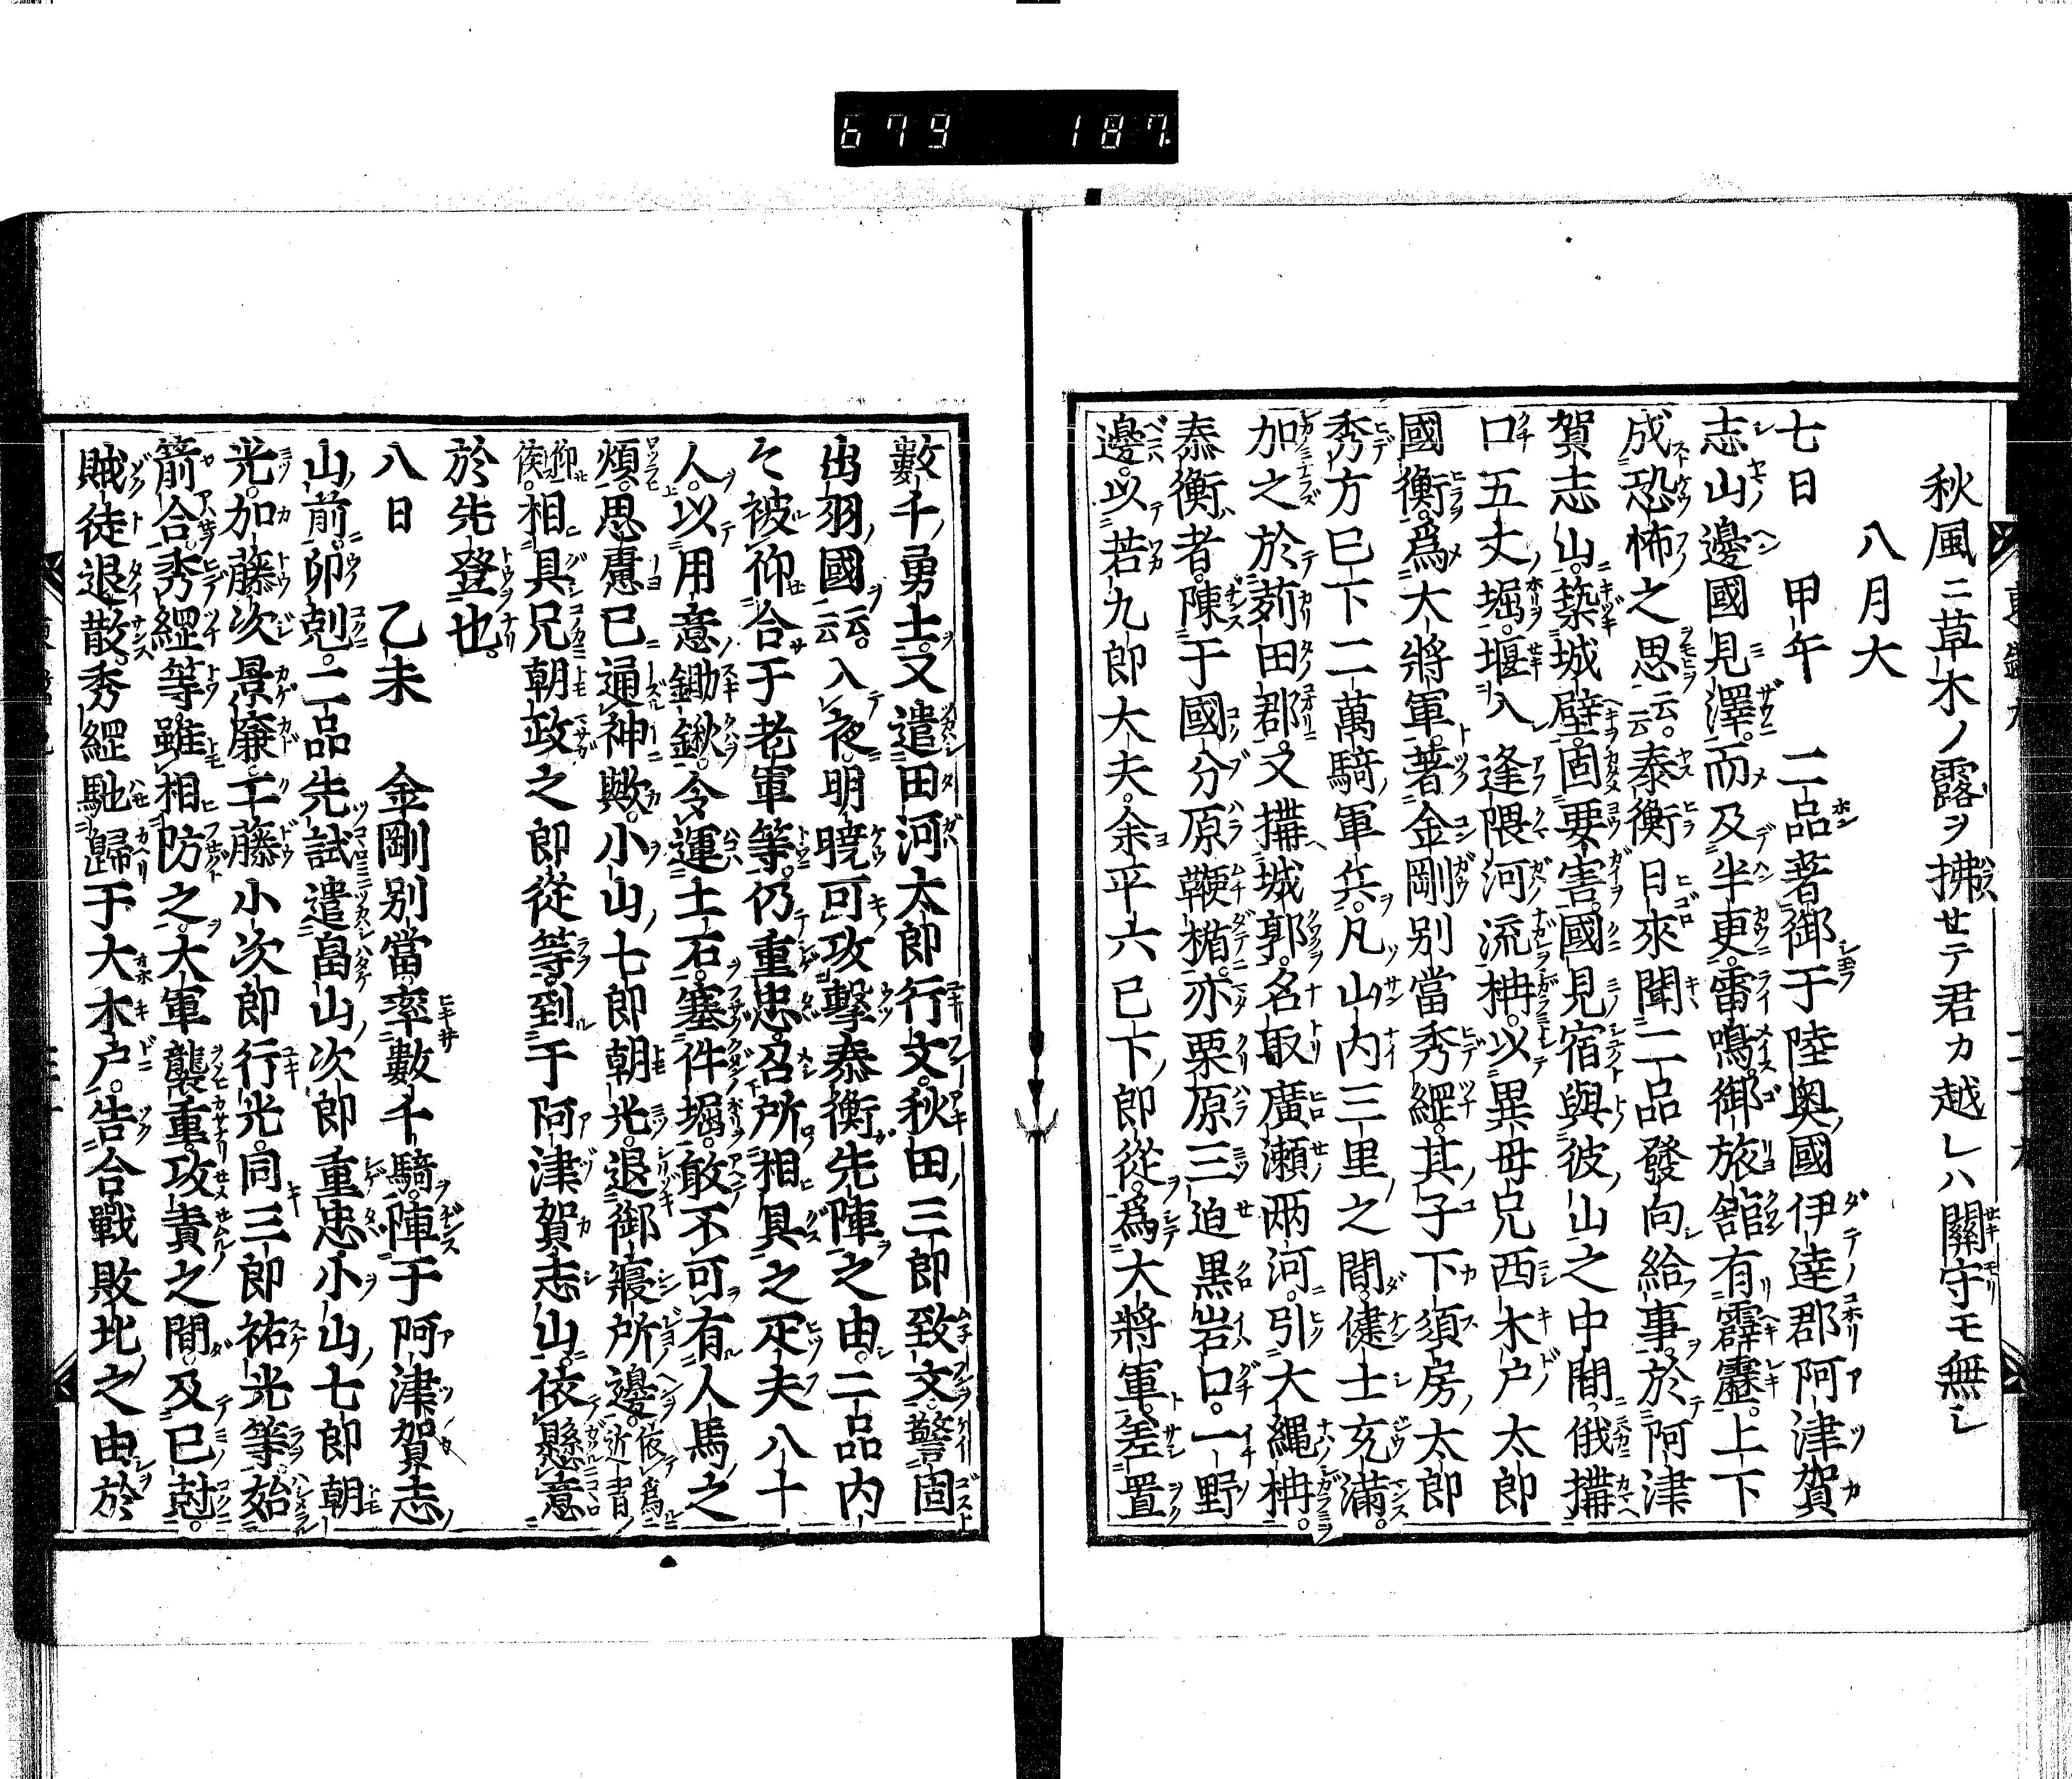 679 187
秋風ニ草木ノ露ヲ拂セテ君カ越レハ關守モ無シ
八月大
七日 甲午 二品著御于陸奥國伊達郡阿津賀
志山邊國見澤而及半更雷鳴御旅舘有霹靂上下
成恐怖之思云云泰衡日來聞二品發向給事於阿津
賀志山築城壁固要害國見宿與彼山之中間俄搆
口五丈堀堰入逢隈河流柵以異母兄西木戸太郎
國衡爲大將軍著金剛別當秀綱其子下須房太郎
秀方已下二萬騎軍兵凡山内三里之間健士充滿
加之於苅田郡又搆城郭名取廣瀬兩河引大縄柵
泰衡者陳于國分原鞭楯亦栗原三迫黒岩口一野
邊以若九郎大夫余平六已下郎從爲大將軍差置
數千勇士又遣田河太郎行文秋田三郎致文警固
出羽國云云入夜明曉可攻撃泰衡先陣之由二品内
々被仰合于老軍等仍重忠召所相具之疋夫八十
人以用意鋤鍬令運土石塞件堀敢不可有人馬之
煩思慮已通神歟小山七郎朝光退御寢所邊依爲近習
仰候相具兄朝政之郎從等到于阿津賀志山依懸意
於先登也
八日 乙未 金剛別當率數千騎陣于阿津賀志
山前卯剋二品先試遣畠山次郎重忠小山七郎朝
光加藤次景廉工藤小次郎行光同三郎祐光等始
箭合秀綱等雖相防之大軍襲重攻責之間及巳尅
賊徒退散秀綱馳歸于大木戸告合戰敗北之由於